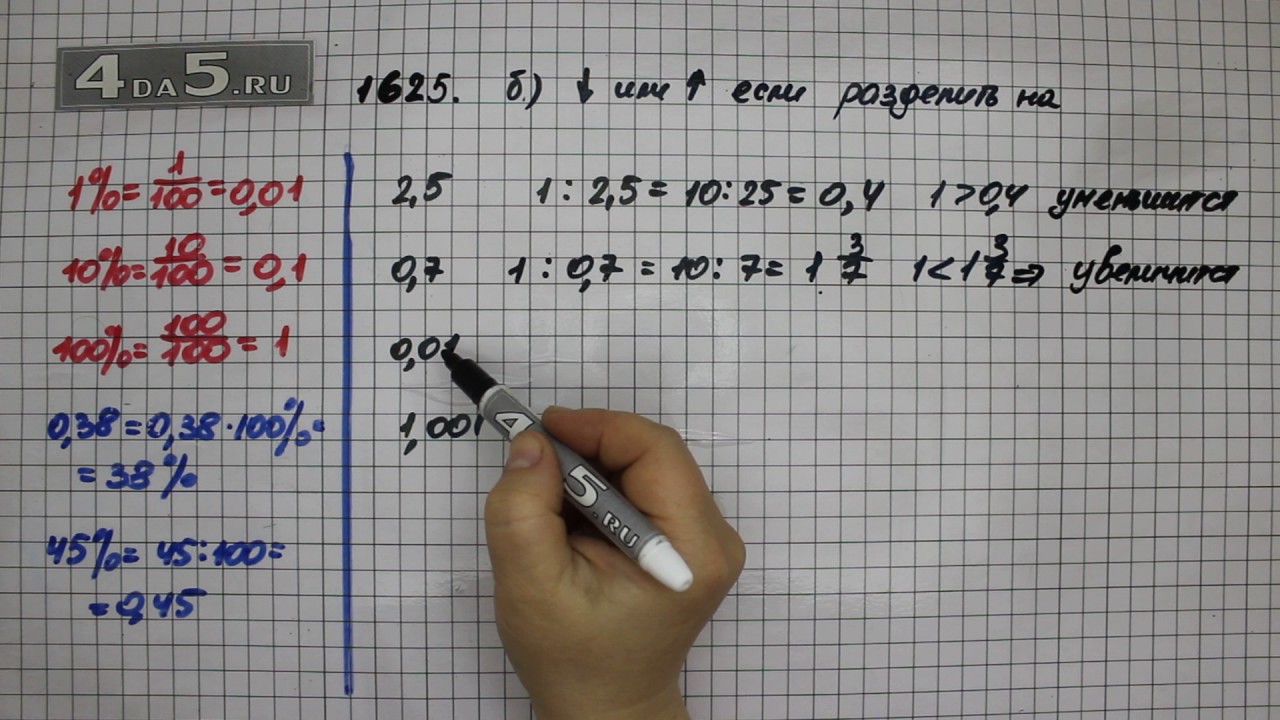 4DA5.RU
1625. б.) ↓ или ↑ если разделить на
1% = 1/100 = 0,01
10% = 10/100 = 0,1
100% = 100/100 = 1
0,38 = 0,38 · 100% =
= 38%
45% = 45 : 100 =
= 0,45
2,5 1 : 2,5 = 10 : 25 = 0,4 1 > 0,4 уменьшится
0,7 1 : 0,7 = 10 : 7 = 1 3/7 1 < 1 3/7 ⇒ увеличится
0,01
1,001
4
5.RU